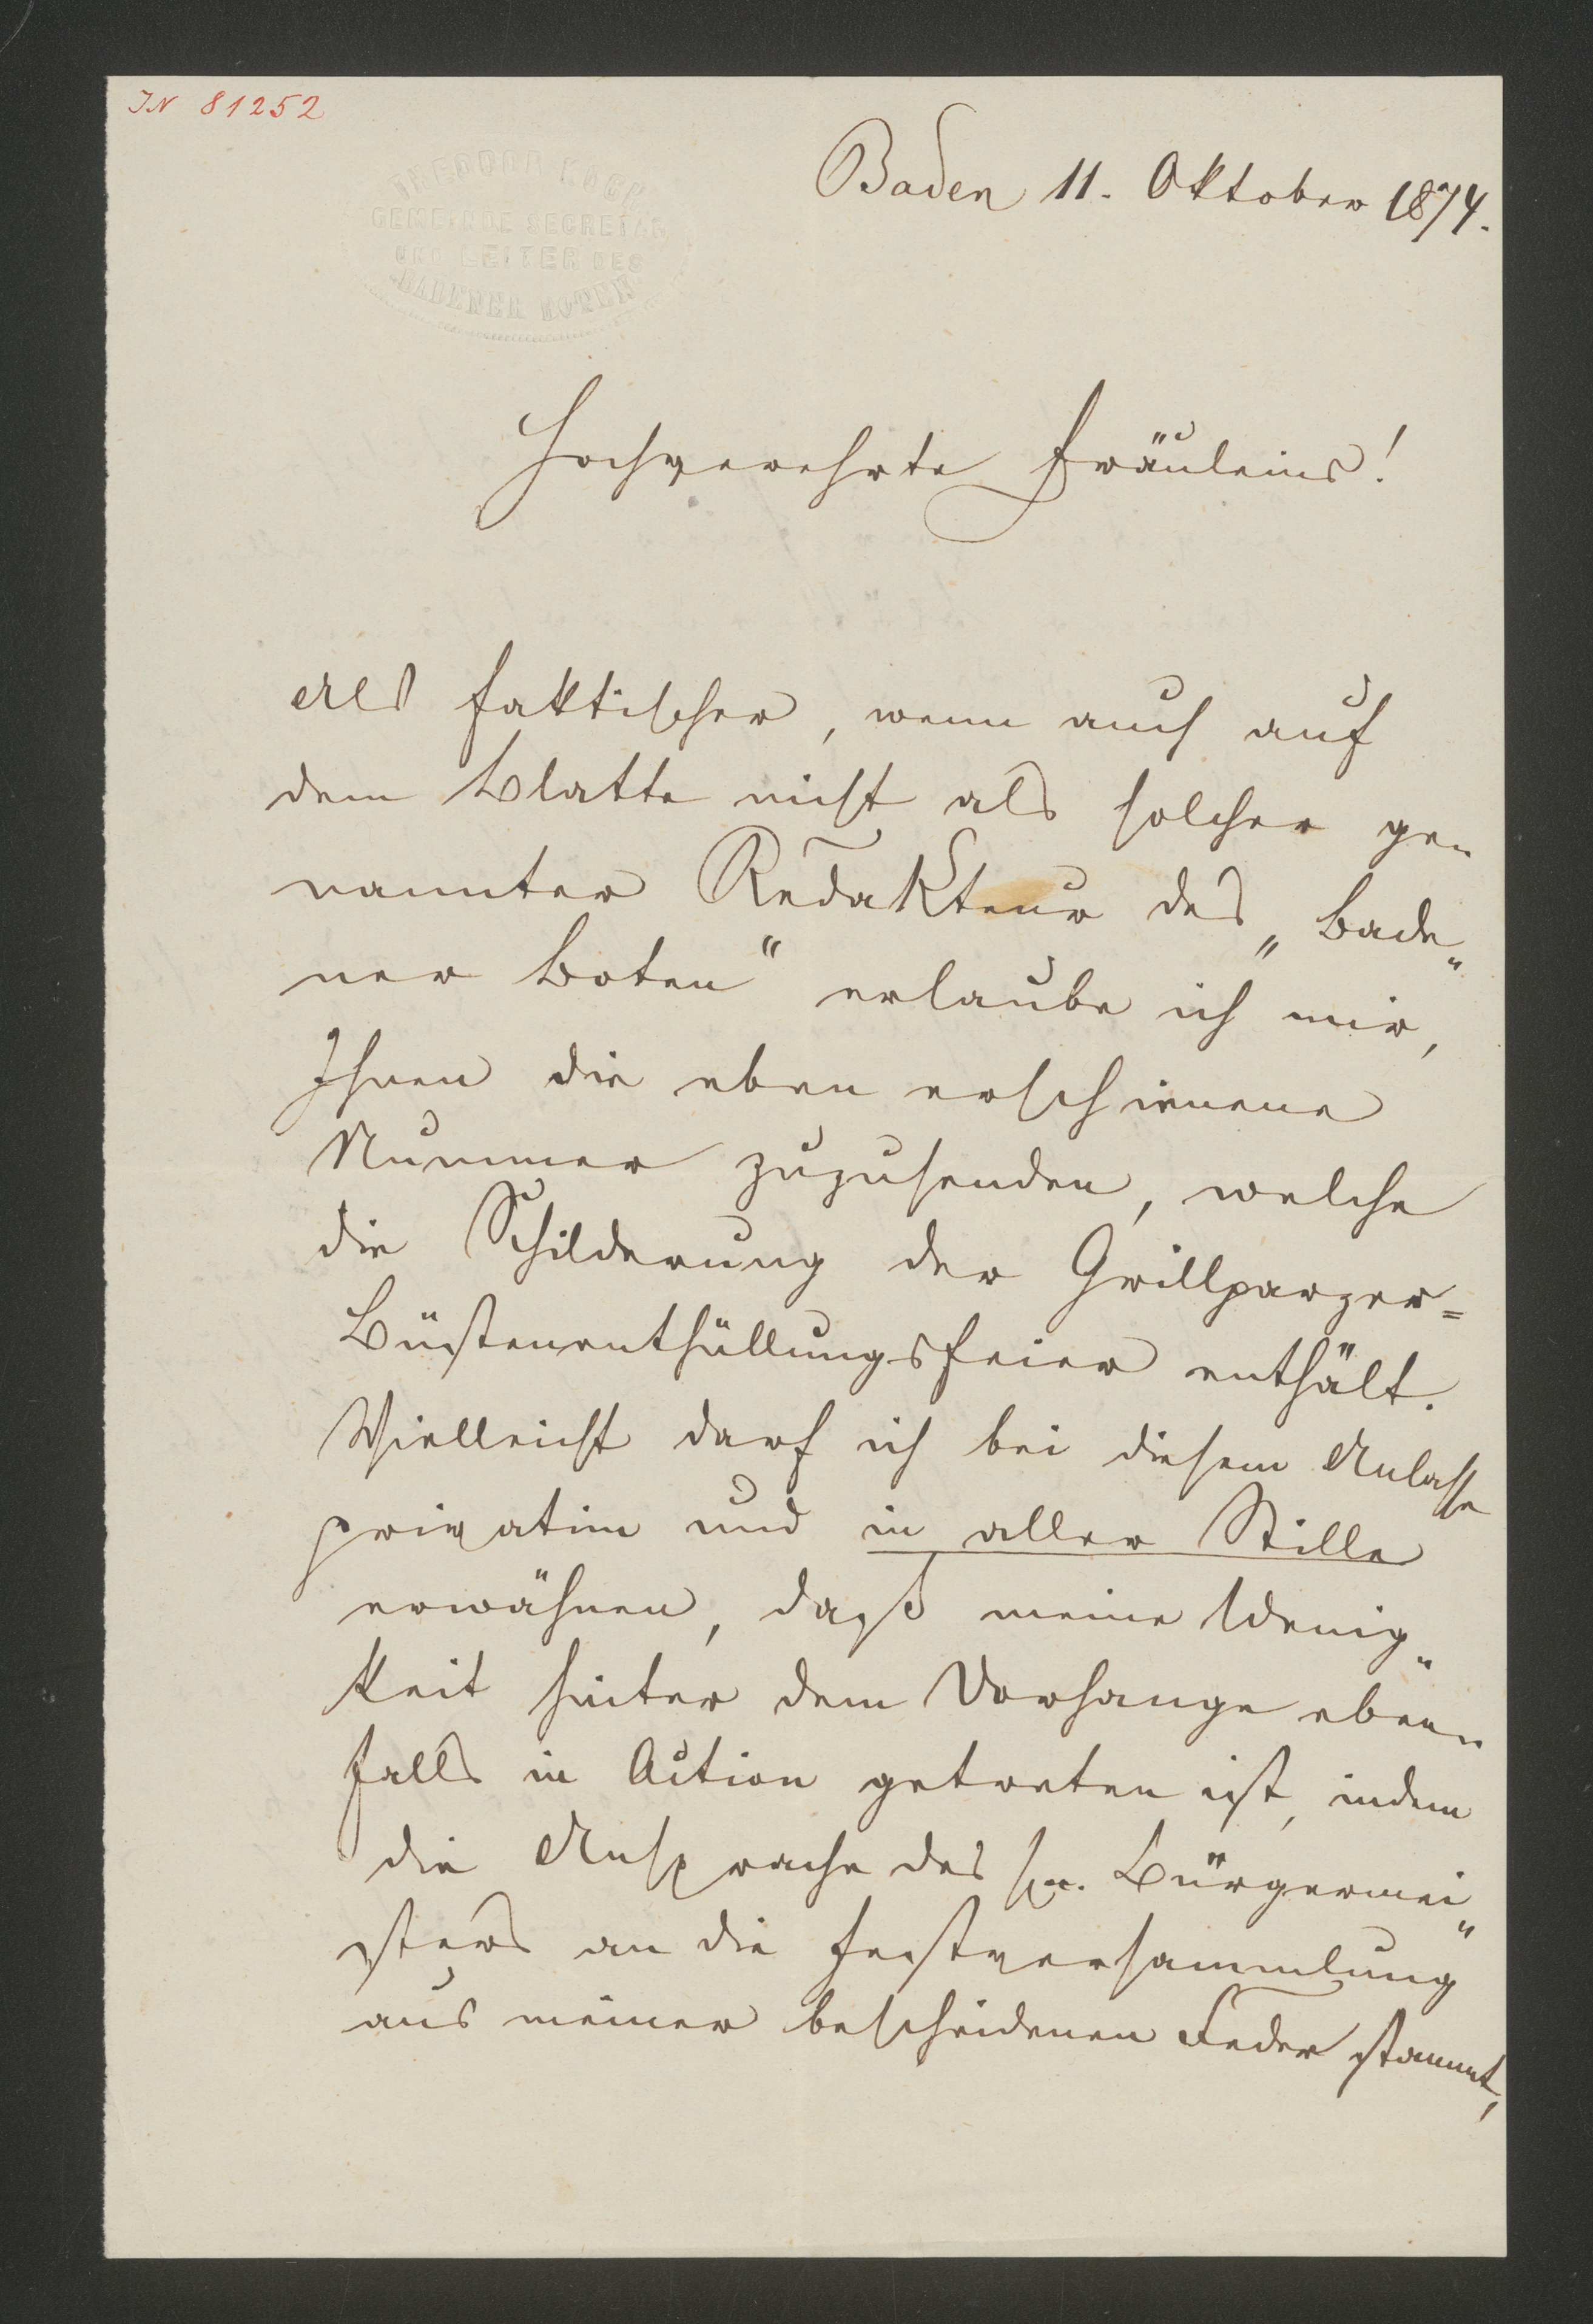 IN 81252
THEODOR KOCH
GEMEINDE SECRETÄR
UND LEITER DES
BADENER BOTEN
Baden 11. Oktober 1874.
Hochverehrte Fräuleins!
Als faktischer, wenn auch auf
dem Blatte nicht als solcher ge„
nannter Redakteur des „Bade„
ner Boten“ erlaube ich mir,
Ihnen die eben erschienene
Nummer zuzusenden, welche
die Schilderung der Grillparzer=
Büstenenthüllungsfeier enthält.
Vielleicht darf ich bei diesem Anlasse
privatim und in aller Stille
erwähnen, daß meine Wenig„
keit hinter dem Vorhange eben„
falls in Action getreten ist, indem
die Ansprache des Hr. Bürgermei„
sters an die Festversammlung
aus meiner bescheidenen Feder stammt,